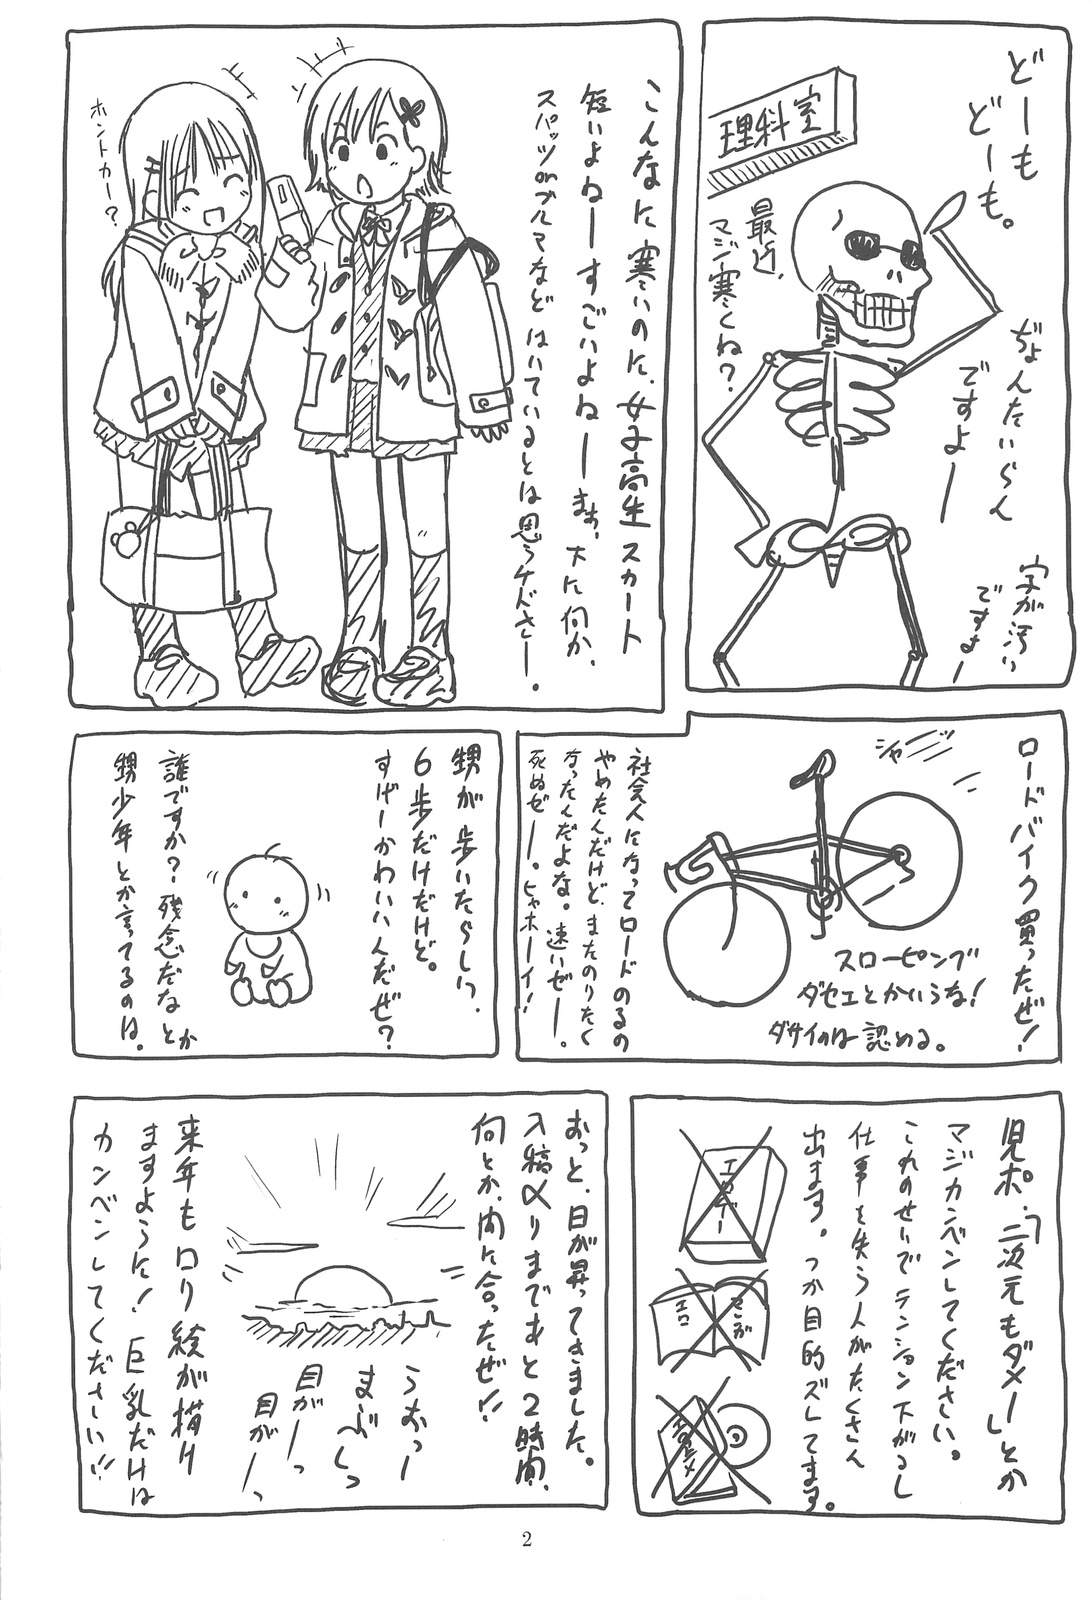 どーも
どーも。
ぢょんたいらん
ですよー
字が汚い
ですよー
理科室
最近、
マジ寒くね?
こんなに寒いのに、女子高生スカート
短いよねーすごいよねーまぁ、下に何か、
スパッツorブルマなどはいているとは思うケドさー。
ホントカー?
ロードバイク買ったぜ!
シャーン
スローピング
ダセェとかいうな!
ダサイのは認める。
社会人になってロードのるの
やめたんだけど、またのりたく
なったんだよな。速いぜー。
死ぬぜー。ヒャホーイ!
甥が歩いたらしい。
6歩だけだけど。
すげーかわいいんだぜ?
誰ですか?残念だなとか
甥少年とか言ってるのは。
児ポ、「二次元もダメー」とか
マジカンベンしてください。
これのせいでテンション下がるし
仕事を失う人がたくさん
出ます。つか目的ズレてます。
エロゲー
エロ
まんが
エロアニメ
おっと、日が昇ってきました。
入稿〆りまであと2時間、
何とか、間に合ったぜ!!
うおっー
まぶしっ
目がーっ
目がーっ
来年もロリ絵が描け
ますように!巨乳だけは
カンベンしてください!!
2